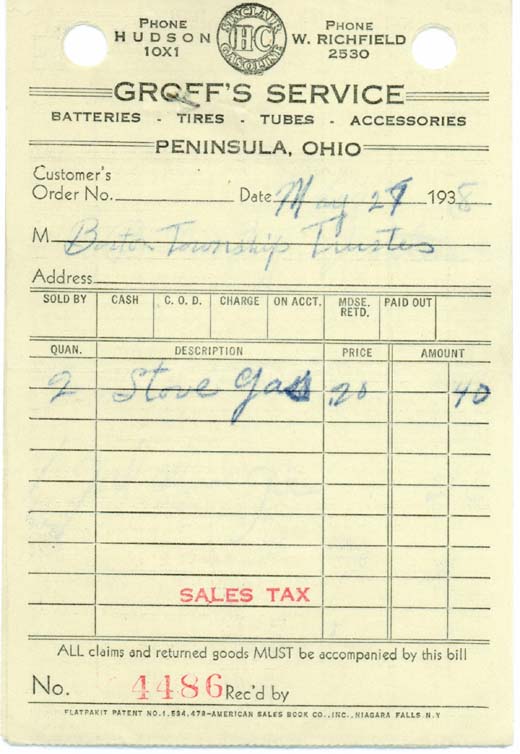 PHONE HUDSON 10X1
SINCLAIR HC GASOLINE
PHONE W. RICHFIELD 2530
GROFF'S SERVICE
BATTERIES - TIRES - TUBES - ACCESSORIES
PENINSULA, OHIO
Customer's
Order No. Date May 27 1938
M Boston Township Trustes
Address
SOLD BY CASH C. O. D. CHARGE ON ACCT. MDSE. RETD. PAID OUT
QUAN. DESCRIPTION PRICE AMOUNT
2 Stove gas .20 40
SALES TAX
ALL claims and returned goods MUST be accompanied by this bill
No. 4486 Rec'd by
FLATPAKIT PATENT NO. 1,584,479-AMERICAN SALES BOOK CO., INC., NIAGARA FALLS, N.Y